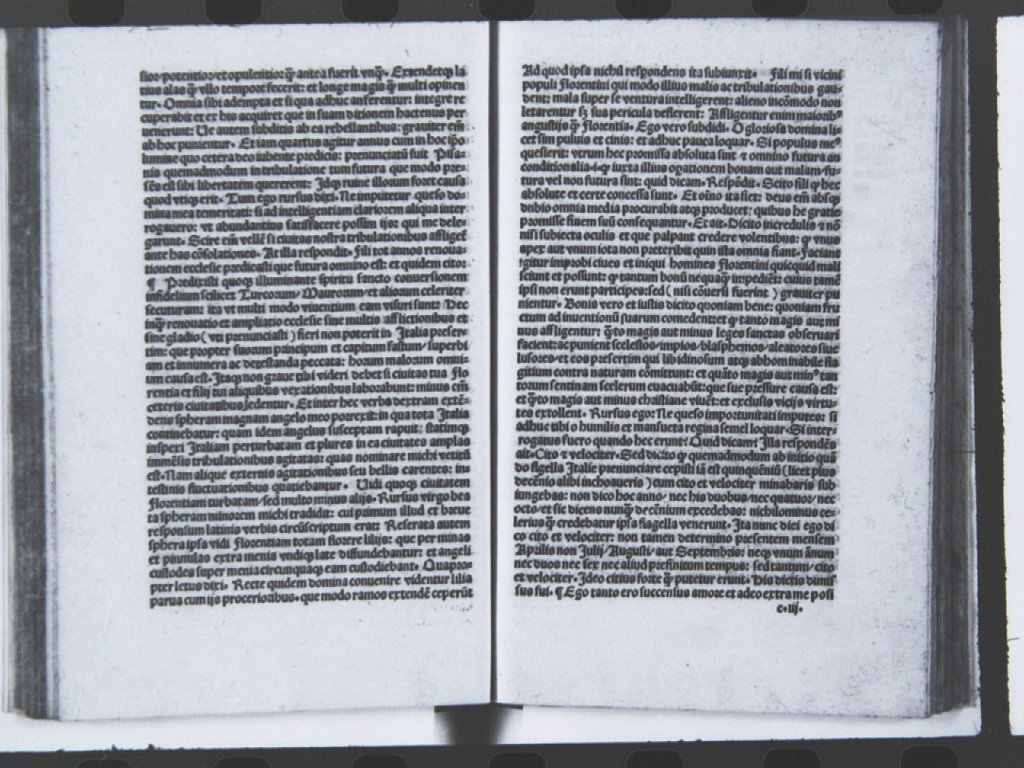 sior potentior et opulentior q̃ antea fuerit vnq̃. Extendetqꝫ la
tius alas q̃ vllo tempore fecerit: et longe magis q̃ multi opinen
tur. Omnia sibi adempta et si qua adhuc auferentur: integre re
cuperabit et ex his acquiret que in suam ditionem hactenus per
uenerunt: Ue autem subditis ab ea rebellantibus: grauiter em̃
ab hoc punientur. Et iam quartus agitur annus cum in hoc ip̃o
lumine quo cetera deo iubente predicis: prenunciatũ fuit Pisa-
nis quemadmodum in tribulatione tum futura que modo pre-
sẽs est sibi libertatem quererent: Idqꝫ ruine illorum foret causa
quod vtiqꝫ erit. Tum ego rursus dixi. Ne imputetur queso do-
mina mea temeritati: si ad intelligentiam clariorem aliqua inter
rogauero: vt abundantius satisfacere possim ijs: qui me dele-
garunt. Scire em̃ vellẽt si ciuitas nostra tribulationibus affligẽt
ante has cõsolationes. At illa respondit. Fili tot annos renoua-
tionem ecclesie predicasti que futura omnino est: et quidem cito:
¶ Predixisti quoqꝫ illuminante spiritu sancto conuersionem
infidelium scilicet Turcorum/ Maurorum/ et aliorum celeriter
secuturam: ita vt multi modo viuentium eam visuri sunt: Hec
inq̃ renouatio et ampliatio ecclesie sine multis afflictionibus et
sine gladio (vti prenunciasti) fieri non poterit in Italia preser-
tim: que propter suorum principum et capitum fastum/ superbi
am et innumera ac detestanda peccata: horum malorum omni-
um causa est. Itaqꝫ non graue tibi videri debet si ciuitas tua Flo
rentia et filij tui aliquibus vexationibus laborabunt: minus em̃
ceteris ciuitatibus ledentur. Et inter hec verba dextram extẽ-
dens spheram magnam angelo meo porrexit: in qua tota Italia
continebatur: quam idem angelus susceptam rapuit: statimqꝫ
inspexi Italiam perturbatam et plures in ea ciuitates amplas
immẽsis tribulationibus agitatas: quas nominare michi vetitũ
est. Nam alique externis agitationibus seu bellis carentes: in-
testinis fluctuationibus quatiebantur. Uidi quoqꝫ ciuitatem
florentiam turbatam/ sed multo minus alijs. Rursus virgo bea
ta spheram minorem michi tradidit: cui primum illud et breue
responsum latinis verbis circũscriptum erat: Reserata autem
sphera ipsa vidi Florentiam totam florere lilijs: que per minas
et pinnulas extra menia vndiqꝫ late diffundebantur: et angeli
custodes super menia circunquaqꝫ eam custodiebant. Quapro-
pter letus dixi. Recte quidem domina conuenire videntur lilia
parua cum ijs procerioribus. que modo ramos extendẽ ceperũt
Ad quod ipsa nichil respondens ita subiunxit. Fili mi si vicini
populi Florentini qui modo illius malis ac tribulationibus gau-
dent: mala super se ventura intelligerent: alieno incõmodo non
letarentur sꝫ sua pericula deflerent: Affligentur enim maioribꝰ
angustijs q̃ Florentia. Ego vero subdidi. O gloriosa domina li-
cet sim puluis et cinis: et adhuc pauca loquar. Si populus meꝰ
quesierit: vtrum hec promissa absoluta sint ⁊ omnino futura an
conditionalia. i. qꝫ iuxta illius orationem bonam aut malam/ fu-
tura vel non futura sint: quid dicam. Respõdit. Scito fili q̃ hec
absolute et certe concessa sunt. Et oĩno ita fiet: deus em̃ absqꝫ
dubio omnia media procurabit atqꝫ producet: quibus he gratie
promisse finem suũ consequantur. Et ait. Dicito incredulis ⁊ nõ
nisi subiecta oculis et que palpant credere volentibus: q̃ vnus
apex aut vnum iota non preteribit quin ita omnia fiant. Faciant
igitur improbi ciues et iniqui homines Florentini quicquid mali
sciunt et possunt: q̃ tantum bonũ nequaq̃ impediẽt: cuius tamẽ
ipsi non erunt participes: sed (nisi cõuersi fuerint) grauiter pu
nientur. Bonis vero et iustis dicito quoniam bene: quoniam fru
ctum ad inuentionũ suarum comedent: et q̃ tanto magis aut mi
nus affligentur: q̃to magis aut minus leges sanctas obseruari
facient: ac punient scelestos/ impios/ blasphemos/ aleatores siue
lusores/ et eos presertim qui libidinosum atqꝫ abhominabile fla
gitium contra naturam cõmittunt: et quãto magis aut minꝰ tan
torum sentinam scelerum euacuabũt: que sue pressure causa est:
et q̃to magis aut minus christiane viuẽt: et exclusis vicijs virtu-
tes extollent. Rursus ego: Ne queso importunitati imputes: si
adhuc tibi o humilis et mansueta regina semel loquar. Si inter-
rogatus fuero quando hec erunt: Quid dicam: Illa respondẽs
ait. Cito ⁊ velociter. Sed dicito q̃ quemadmodum ab initio quã
do flagella Italie prenunciare cepisti iã est quinquẽniũ (licet plus
decẽnio alibi inchoaueris) cum cito et velociter minabaris sub
iungebas: non dico hoc anno/ nec his duobus/ nec quatuor/ nec
octo/ et sic dicens nunq̃ decẽnium excedebas: nichilominus ce-
lerius q̃ credebatur ipsa flagella venerunt. Ita nunc dici ego di
co cito et velociter: non tamen determino presentem mensem
Aprilis non Julij/ Augusti/ aut Septembris: neqꝫ vnum ãnum
nec duos nec sex nec aliud prefinitum tempus: sed tantum/ cito
et velociter. Ideo citius forte q̃ putetur erunt. His dictis dimis
sus fui. ¶ Ego tanto ero succensus amore et adeo extra me posi
c. iij.